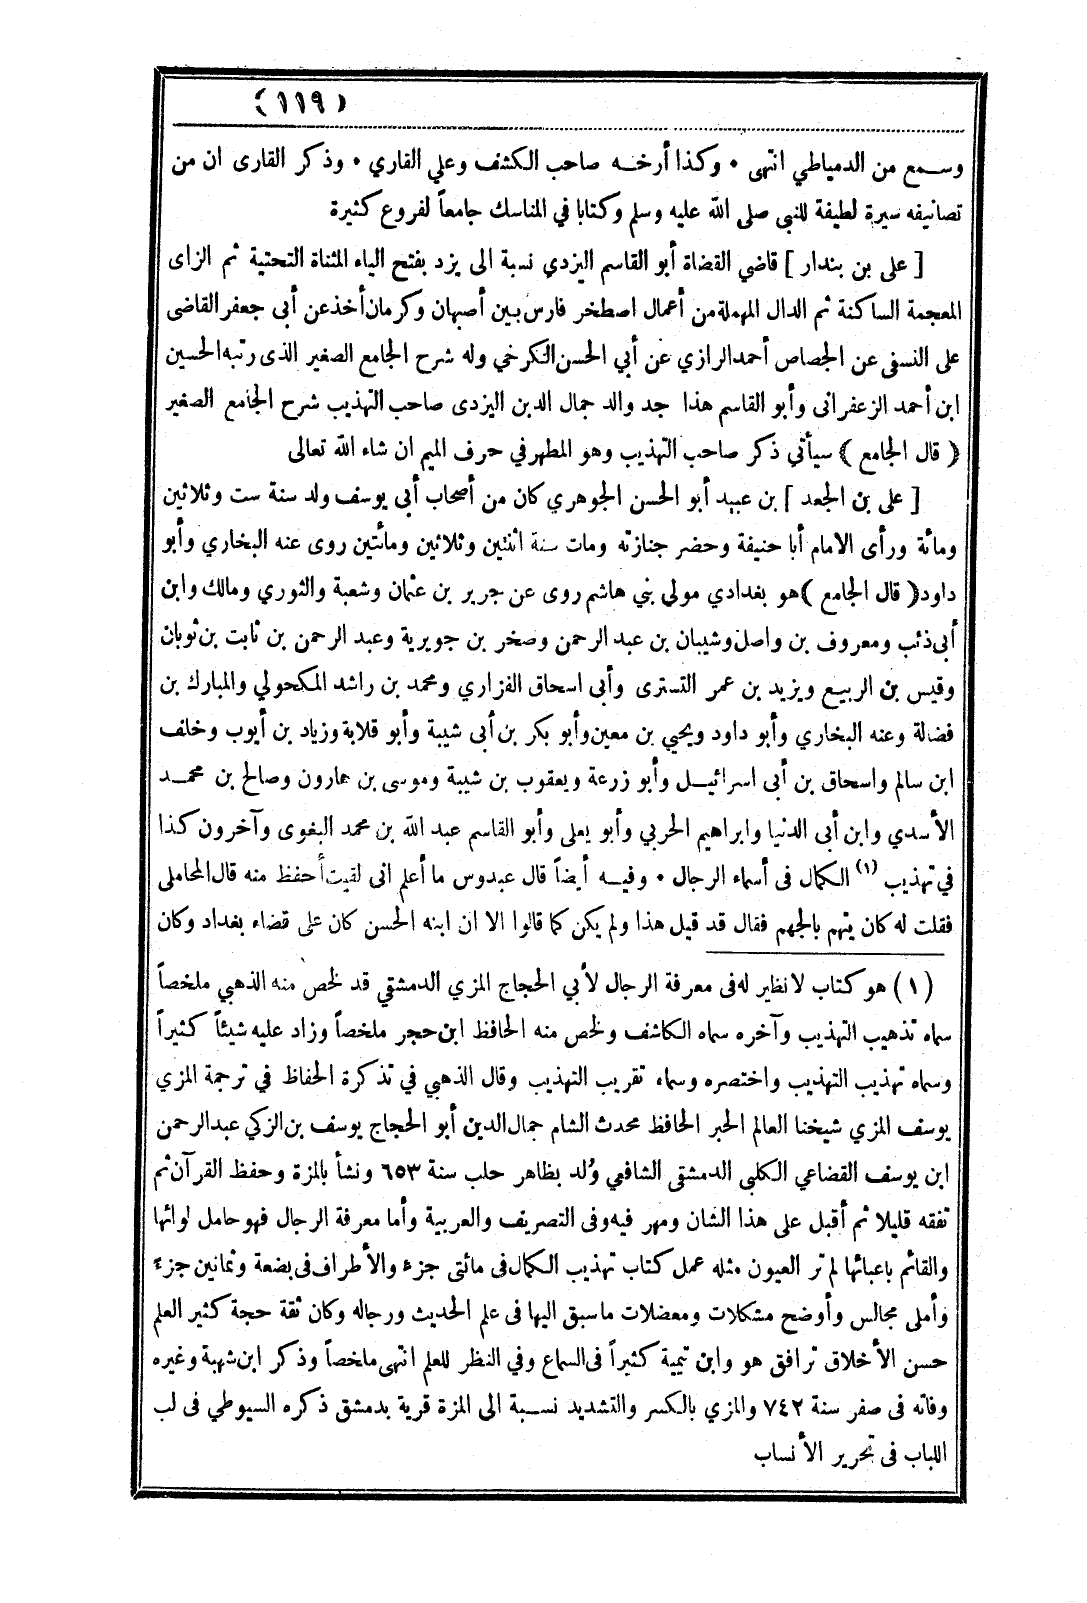 (١١٩)
وسمع من الدمياطي انتهى • وكذا أرخه صاحب الكشف وعلي القاري • وذكر القارى ان من
تصانيفه سيرة لطيفة للنبى صلى الله عليه وسلم وكتابا في المناسك جامعاً لفروع كثيرة
[ على بن بندار ] قاضي القضاة أبو القاسم اليزدي نسبة الى يزد بفتح الياء المثناة التحتية ثم الزاى
المعجمة الساكنة ثم الدال المهملة من أعمال اصطخر فارس بين أصبهان وكرمان أخذ عن أبى جعفر القاضى
على النسفى عن الجصاص أحمد الرازي عن أبي الحسن الكرخي وله شرح الجامع الصغير الذى رتبه الحسين
ابن أحمد الزعفرانى وأبو القاسم هذا جد والد جمال الدين اليزدى صاحب التهذيب شرح الجامع الصغير
( قال الجامع ) سيأتي ذكر صاحب التهذيب وهو المطهر في حرف الميم ان شاء الله تعالى
[ على بن الجعد ] بن عبيد أبو الحسن الجوهري كان من أصحاب أبى يوسف ولد سنة ست وثلاثين
ومائة ورأى الامام أبا حنيفة وحضر جنازته ومات سنة اثنتين وثلاثين ومائتين روى عنه البخاري وأبو
داود ( قال الجامع ) هو بغدادي مولى بني هاشم روى عن جرير بن عثمان وشعبة والثوري ومالك وابن
أبى ذئب ومعروف بن واصل وشيبان بن عبد الرحمن وصخر بن جويرية وعبد الرحمن بن ثابت بن ثوبان
وقيس بن الربيع ويزيد بن عمر التسترى وأبى اسحاق الفزاري ومحمد بن راشد المكحولي والمبارك بن
فضالة وعنه البخاري وأبو داود ويحيي بن معين وأبو بكر بن أبى شيبة وأبو قلابة وزياد بن أيوب وخلف
ابن سالم واسحاق بن أبى اسرائيل وأبو زرعة ويعقوب بن شيبة وموسى بن هارون وصالح بن محمد
الأسدي وابن أبى الدنيا وابراهيم الحربي وأبو يعلى وأبو القاسم عبد الله بن محمد البغوى وآخرون كذا
في تهذيب (١) الكمال فى أسماء الرجال • وفيه أيضاً قال عبدوس ما أعلم انى لقيت أحفظ منه قال المحاملى
فقلت له كان يتهم بالجهم فقال قد قيل هذا ولم يكن كما قالوا الا ان ابنه الحسن كان على قضاء بغداد وكان
(١) هو كتاب لا نظير له فى معرفة الرجال لأبي الحجاج المزي الدمشقي قد لخص منه الذهبي ملخصاً
سماه تذهيب التهذيب وآخره سماه الكاشف ولخص منه الحافظ ابن حجر ملخصاً وزاد عليه شيئاً كثيراً
وسماه تهذيب التهذيب واختصره وسماه تقريب التهذيب وقال الذهبي في تذكرة الحفاظ في ترجمة المزي
يوسف المزي شيخنا العالم الحبر الحافظ محدث الشام جمال الدين أبو الحجاج يوسف بن الزكي عبد الرحمن
ابن يوسف القضاعي الكلبي الدمشقي الشافعي وُلد بظاهر حلب سنة ٦٥٣ ونشأ بالمزة وحفظ القرآن ثم
تفقه قليلا ثم أقبل على هذا الشان ومهر فيه وفى التصريف والعربية وأما معرفة الرجال فهو حامل لوائها
والقائم باعبائها لم تر العيون مثله عمل كتاب تهذيب الكمال فى مائتى جزء والأطراف فى بضعة وثمانين جزءً
وأملى مجالس وأوضح مشكلات ومعضلات ما سبق اليها فى علم الحديث ورجاله وكان ثقة حجة كثير العلم
حسن الأخلاق ترافق هو وابن تيمية كثيراً فى السماع وفي النظر للعلم انتهى ملخصاً وذكر ابن شهبة وغيره
وفاته فى صفر سنة ٧٤٢ والمزي بالكسر والتشديد نسبة الى المزة قرية بدمشق ذكره السيوطي فى لب
اللباب فى تحرير الأنساب